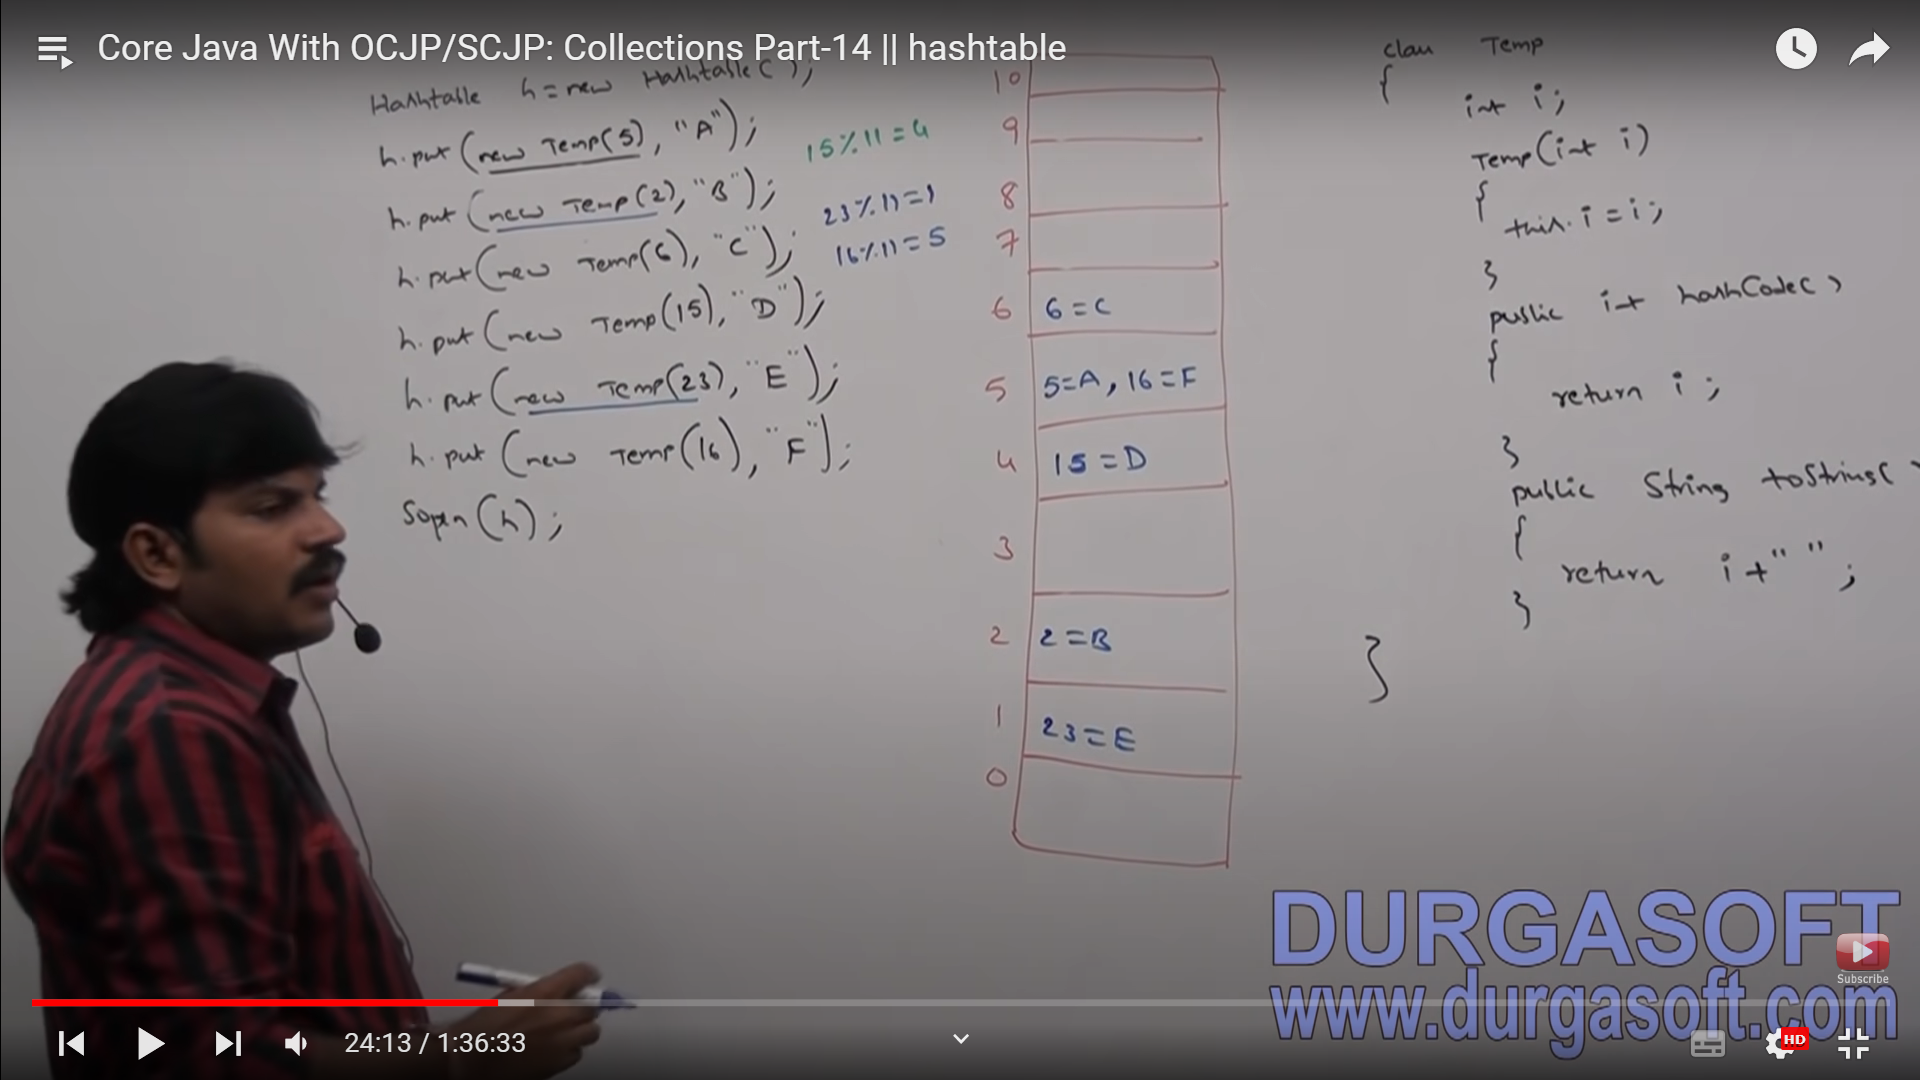 Core Java With OCJP/SCJP: Collections Part-14 || hashtable
Hashtable h = new Hashtable( );
h.put (new Temp(5), "A");
h.put (new Temp(2), "B");
h.put (new Temp(6), "C");
h.put (new Temp(15), "D");
h.put (new Temp(23), "E");
h.put (new Temp(16), "F");
Sopln (h);
15%11=4
23%11=1
16%11=5
10
9
8
7
6 6=C
5 5=A, 16=F
4 15=D
3
2 2=B
1 23=E
0
class Temp
{
int i;
Temp(int i)
{
this.i=i;
}
public int hashCode( )
{
return i;
}
public String toString( )
{
return i+" ";
}
}
DURGASOFT
www.durgasoft.com
Subscribe
24:13 / 1:36:33
HD